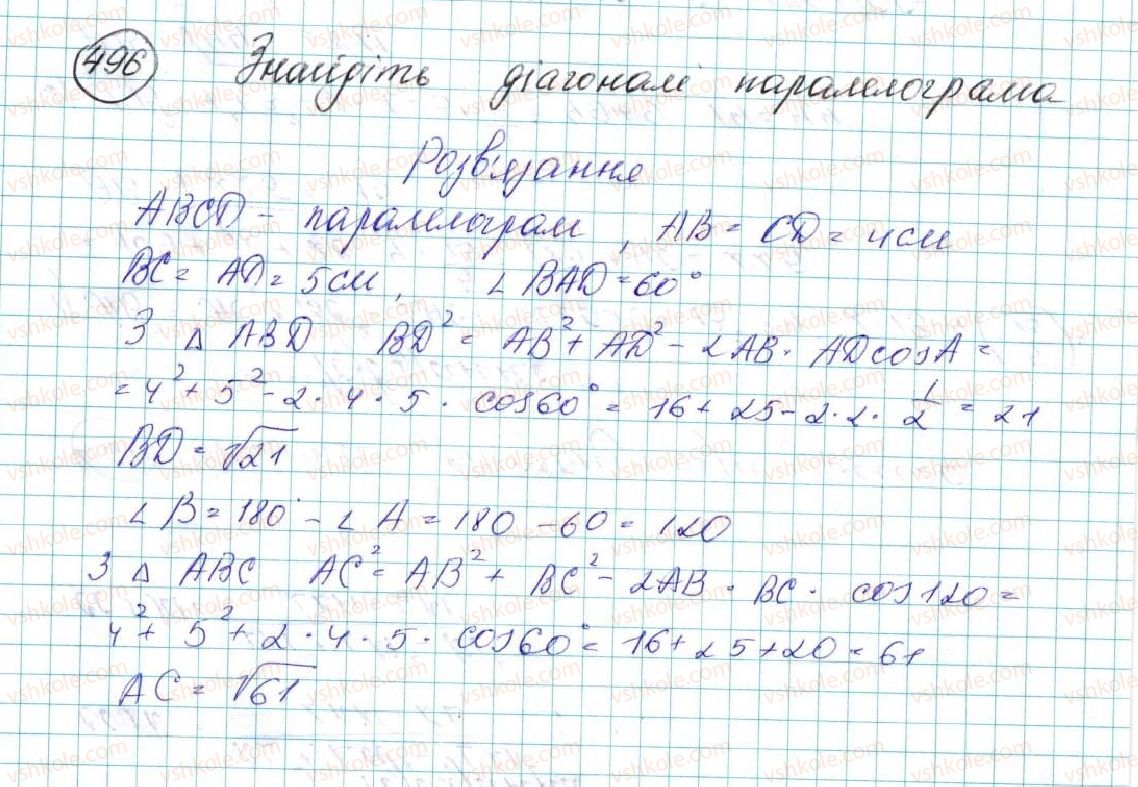 496 Знайдіть діагоналі паралелограма
Розв'язання
ABCD - паралелограм, AB = CD = 4см
BC = AD = 5см, ∠BAD = 60°
З △ ABD BD² = AB² + AD² - 2AB · AD cosA =
= 4² + 5² - 2 · 4 · 5 · cos60° = 16 + 25 - 2·2· 1/2 = 21
BD = √21
∠B = 180° - ∠A = 180 - 60 = 120
З △ ABC AC² = AB² + BC² - 2AB · BC · cos120 =
4² + 5² + 2 · 4 · 5 · cos60° = 16 + 25 + 20 = 61
AC = √61
vshkole.com